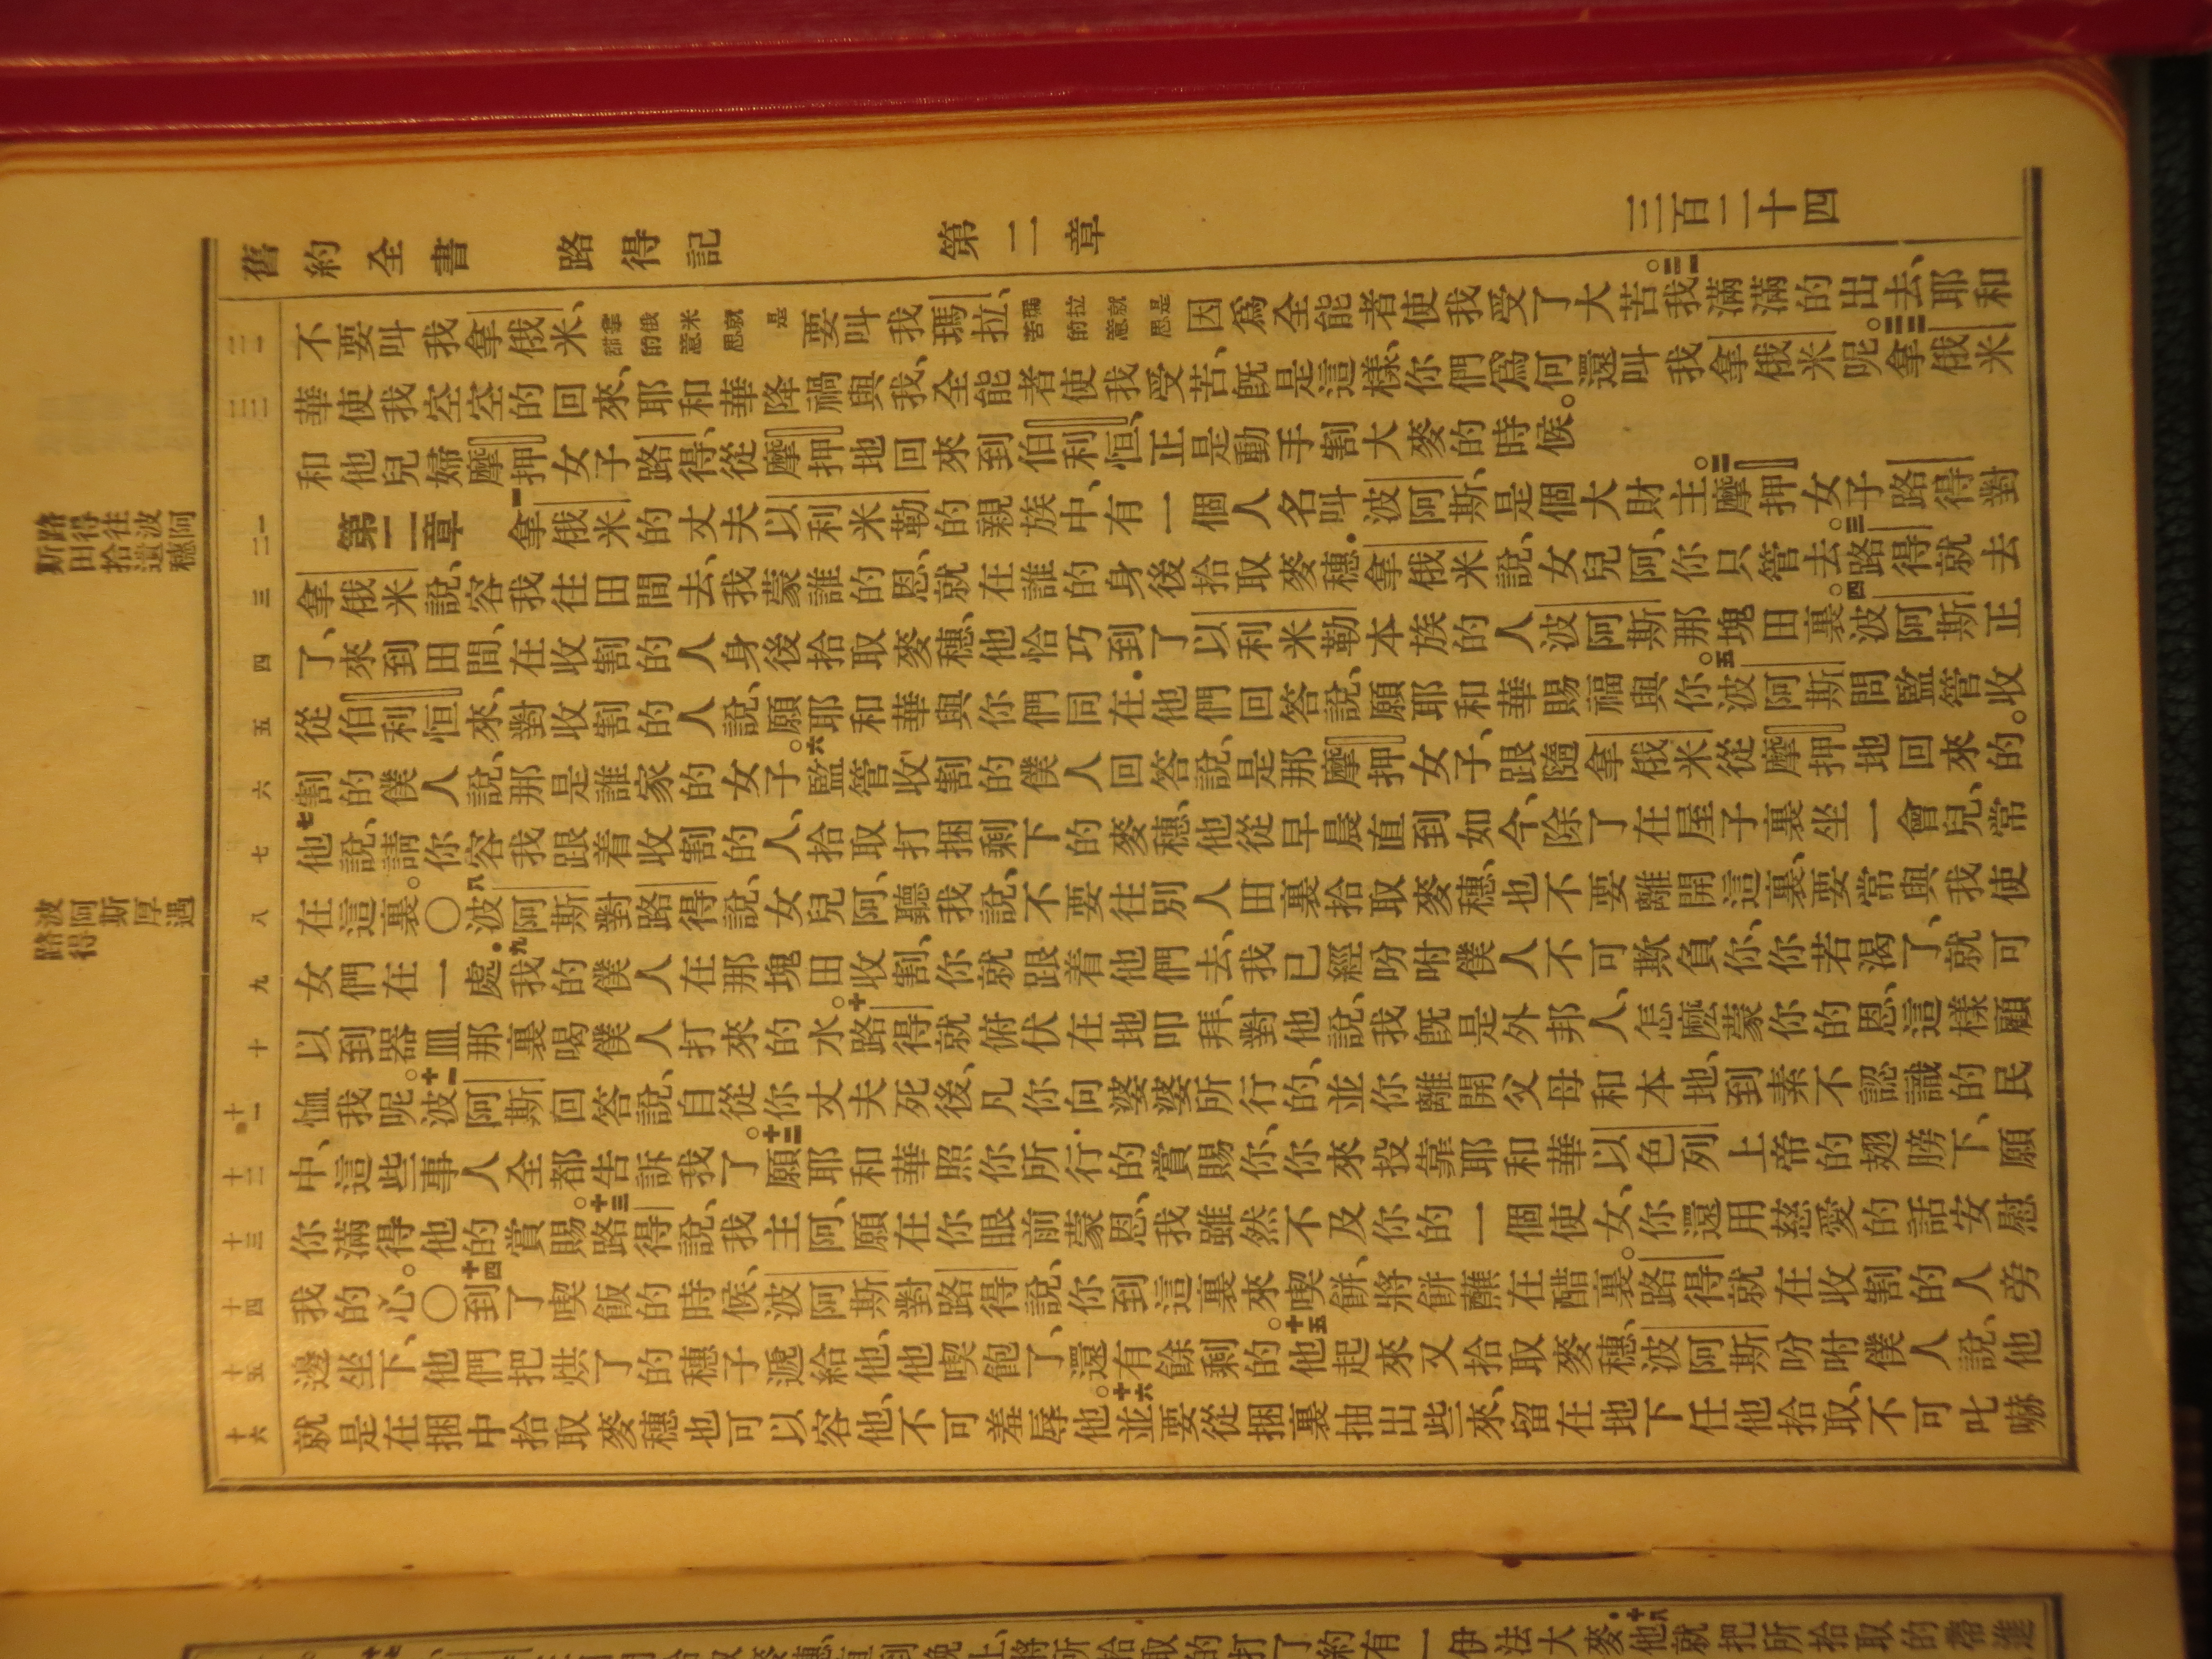 舊約全書 路得記 第二章 三百二十四
路得往波阿斯田拾遺穗
波阿斯厚遇路得
二一
不要叫我拿俄米、拿俄米就是甜的意思 要叫我瑪拉、瑪拉就是苦的意思 因爲全能者使我受了大苦。二一我滿滿的出去、耶和
二二
華使我空空的回來、耶和華降禍與我、全能者使我受苦、旣是這樣、你們爲何還叫我拿俄米呢。二二拿俄米
和他兒婦摩押女子路得、從摩押地回來到伯利恒、正是動手割大麥的時候。
一二
第二章 一拿俄米的丈夫以利米勒的親族中、有一個人名叫波阿斯、是個大財主。二摩押女子路得對
三
拿俄米說、容我往田間去、我蒙誰的恩、就在誰的身後拾取麥穗.拿俄米說、女兒阿、你只管去。三路得就去
四
了、來到田間、在收割的人身後拾取麥穗、他恰巧到了以利米勒本族的人波阿斯那塊田裏。四波阿斯正
五
從伯利恒來、對收割的人說、願耶和華與你們同在.他們回答說、願耶和華賜福與你。五波阿斯問監管收
六
割的僕人說、那是誰家的女子。六監管收割的僕人回答說、是那摩押女子、跟隨拿俄米從摩押地回來的。
七
七他說、請你容我跟着收割的人、拾取打捆剩下的麥穗、他從早晨直到如今、除了在屋子裏坐一會兒、常
八
在這裏。〇八波阿斯對路得說、女兒阿、聽我說、不要往別人田裏拾取麥穗、也不要離開這裏、要常與我使
九
女們在一處.九我的僕人在那塊田收割、你就跟着他們去、我已經吩咐僕人不可欺負你、你若渴了、就可
十
以到器皿那裏喝僕人打來的水。十路得就俯伏在地叩拜、對他說、我旣是外邦人、怎麽蒙你的恩、這樣顧
十一
恤我呢。十一波阿斯回答說、自從你丈夫死後、凡你向婆婆所行的、並你離開父母和本地、到素不認識的民
十二
中、這些事人全都告訴我了。十二願耶和華照你所行的賞賜你、你來投靠耶和華以色列上帝的翅膀下、願
十三
你滿得他的賞賜。十三路得說、我主阿、願在你眼前蒙恩、我雖然不及你的一個使女、你還用慈愛的話安慰
十四
我的心。〇十四到了喫飯的時候、波阿斯對路得說、你到這裏來喫餅、將餅蘸在醋裏。路得就在收割的人旁
十五
邊坐下、他們把烘了的穗子遞給他、他喫飽了、還有餘剩的。十五他起來又拾取麥穗、波阿斯吩咐僕人說、他
十六
就是在捆中拾取麥穗也可以容他、不可羞辱他。十六並要從捆裏抽出些來、留在地下任他拾取、不可叱嚇
將所拾取的打了約有一伊法大麥.十八他就把所拾取的帶進